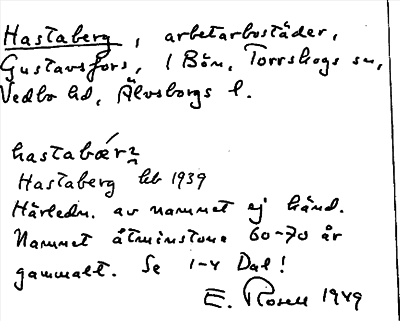 Hastaberg, arbetarbostäder,
Gustavsfors, 1 Bön, Torrskogs sn,
Vedbo hd, Älvsborgs l.
hastabær̀
Hastaberg kb 1939
Härledn. av namnet ej känd.
Namnet åtminstone 60-70 år
gammalt. Se 1-4 Dal!
E. Rosell 1949